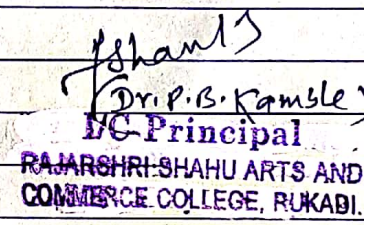 Dr. P. B. Kamble
I/C Principal
RAJARSHRI SHAHU ARTS AND
COMMERCE COLLEGE, RUKADI.